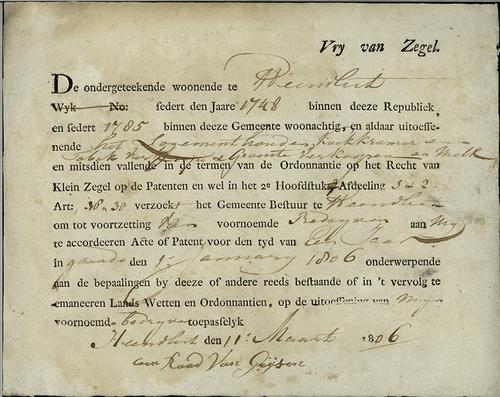 Vry van Zegel.
De ondergeteekende woonende te Heenvliet
Wyk No: sedert den Jaare 1748 binnen deeze Republiek,
en sedert 1785 binnen deeze Gemeente woonachtig, en aldaar uitoeffe-
nende het Logementhouden, koekkramer en
Tabak Verkopen & Groente Verkoopen en Melk
en mitsdien vallende in de termen van de Ordonnantie op het Recht van
Klein Zegel op de Patenten en wel in het 2e Hoofdstuk, Afdeeling 1 & 2
Art: 30 verzoekt het Gemeente Bestuur te Heenvliet
om tot voortzetting van voornoemde Bedryven aan My
te accordeeren Acte of Patent voor den tyd van Een Jaar
in gaande den 1e January 1806 onderwerpende
aan de bepaalingen by deeze of andere reeds bestaande of in 't vervolg te
emaneeren Lands Wetten en Ordonnantien, op de uitoeffening van Myn
voornoemde bedryven toepasselyk
Heenvliet den 11e Maart 1806
Van Gijsen